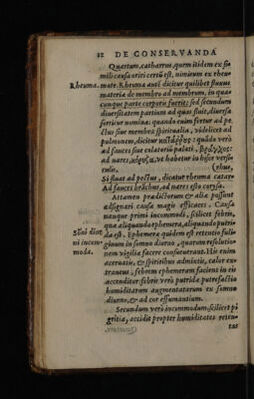 12 DE CONSERVANDA
Quartum, catharrus, quem itidem ex si
mili causa oriri certū est, nimirum ex rheu
Rheuma. mate. Rheuma autē dicitur quilibet fluxus
materiæ de membro ad membrum, in qua
cunque parte corporis fuerit: sed secundum
diversitatem partium ad quas fluit, diversa
sortitur nomina: quando enim fertur ad pe
ctus sive membra spiritualia, videlicet ad
pulmonem, dicitur κατάῤῥος: quādo verò
ad fauces sive colatorii palati, βράγχος:
ad nares, κόρυζα, ut habetur in hisce versi-
(bus,
Si fluat ad pectus, dicatur rheuma catarr
Ad fauces brāchus, ad nares esto coryza.
Attamen prædictorum & aliæ possunt
assignari causæ magis efficaces. Causa
nanque primi incommodi, scilicet febris,
quæ aliquando ephemera, aliquando putri
da est. Ephemera quidem est retentio fuligi
num in somno diurno, quarum resolutio-
nem vigilia facere consueverat. Hic enim
acervatis, & spiritibus admixtis, calor ex-
traneus, febrem ephemeram faciens in eis
accenditur febris verò putridæ putrefactio
humiditatum augmentatarum ex somno
diurno, & ad cor effumantium.
Secundum verò incommodum, scilicet pi
gritia, accidit propter humiditates reten-
tas